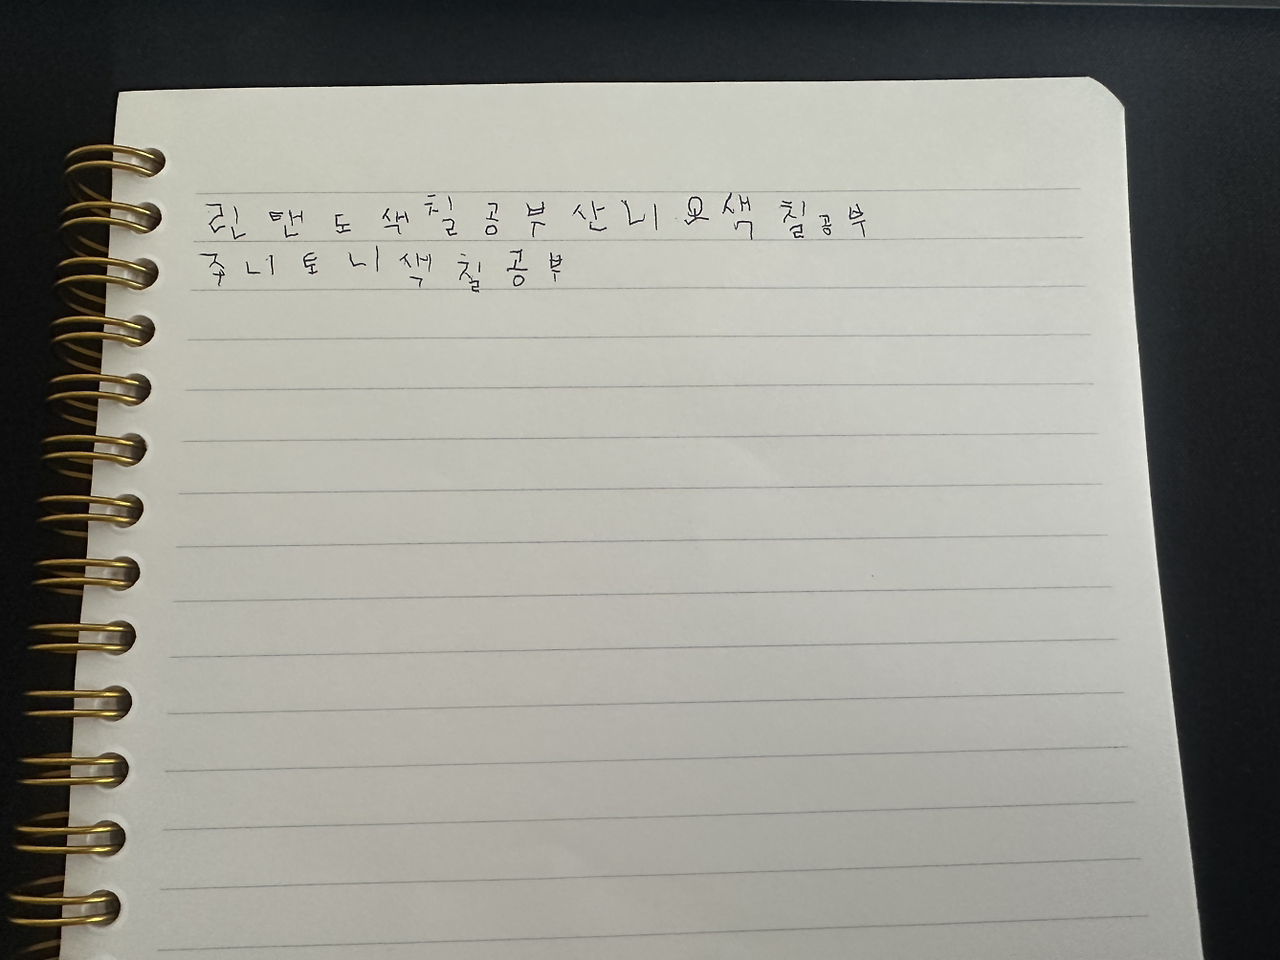 린 맨 도 색 칠 공 부 산 니 요 색 칠 공 부
주 니 토 니 색 칠 공 부